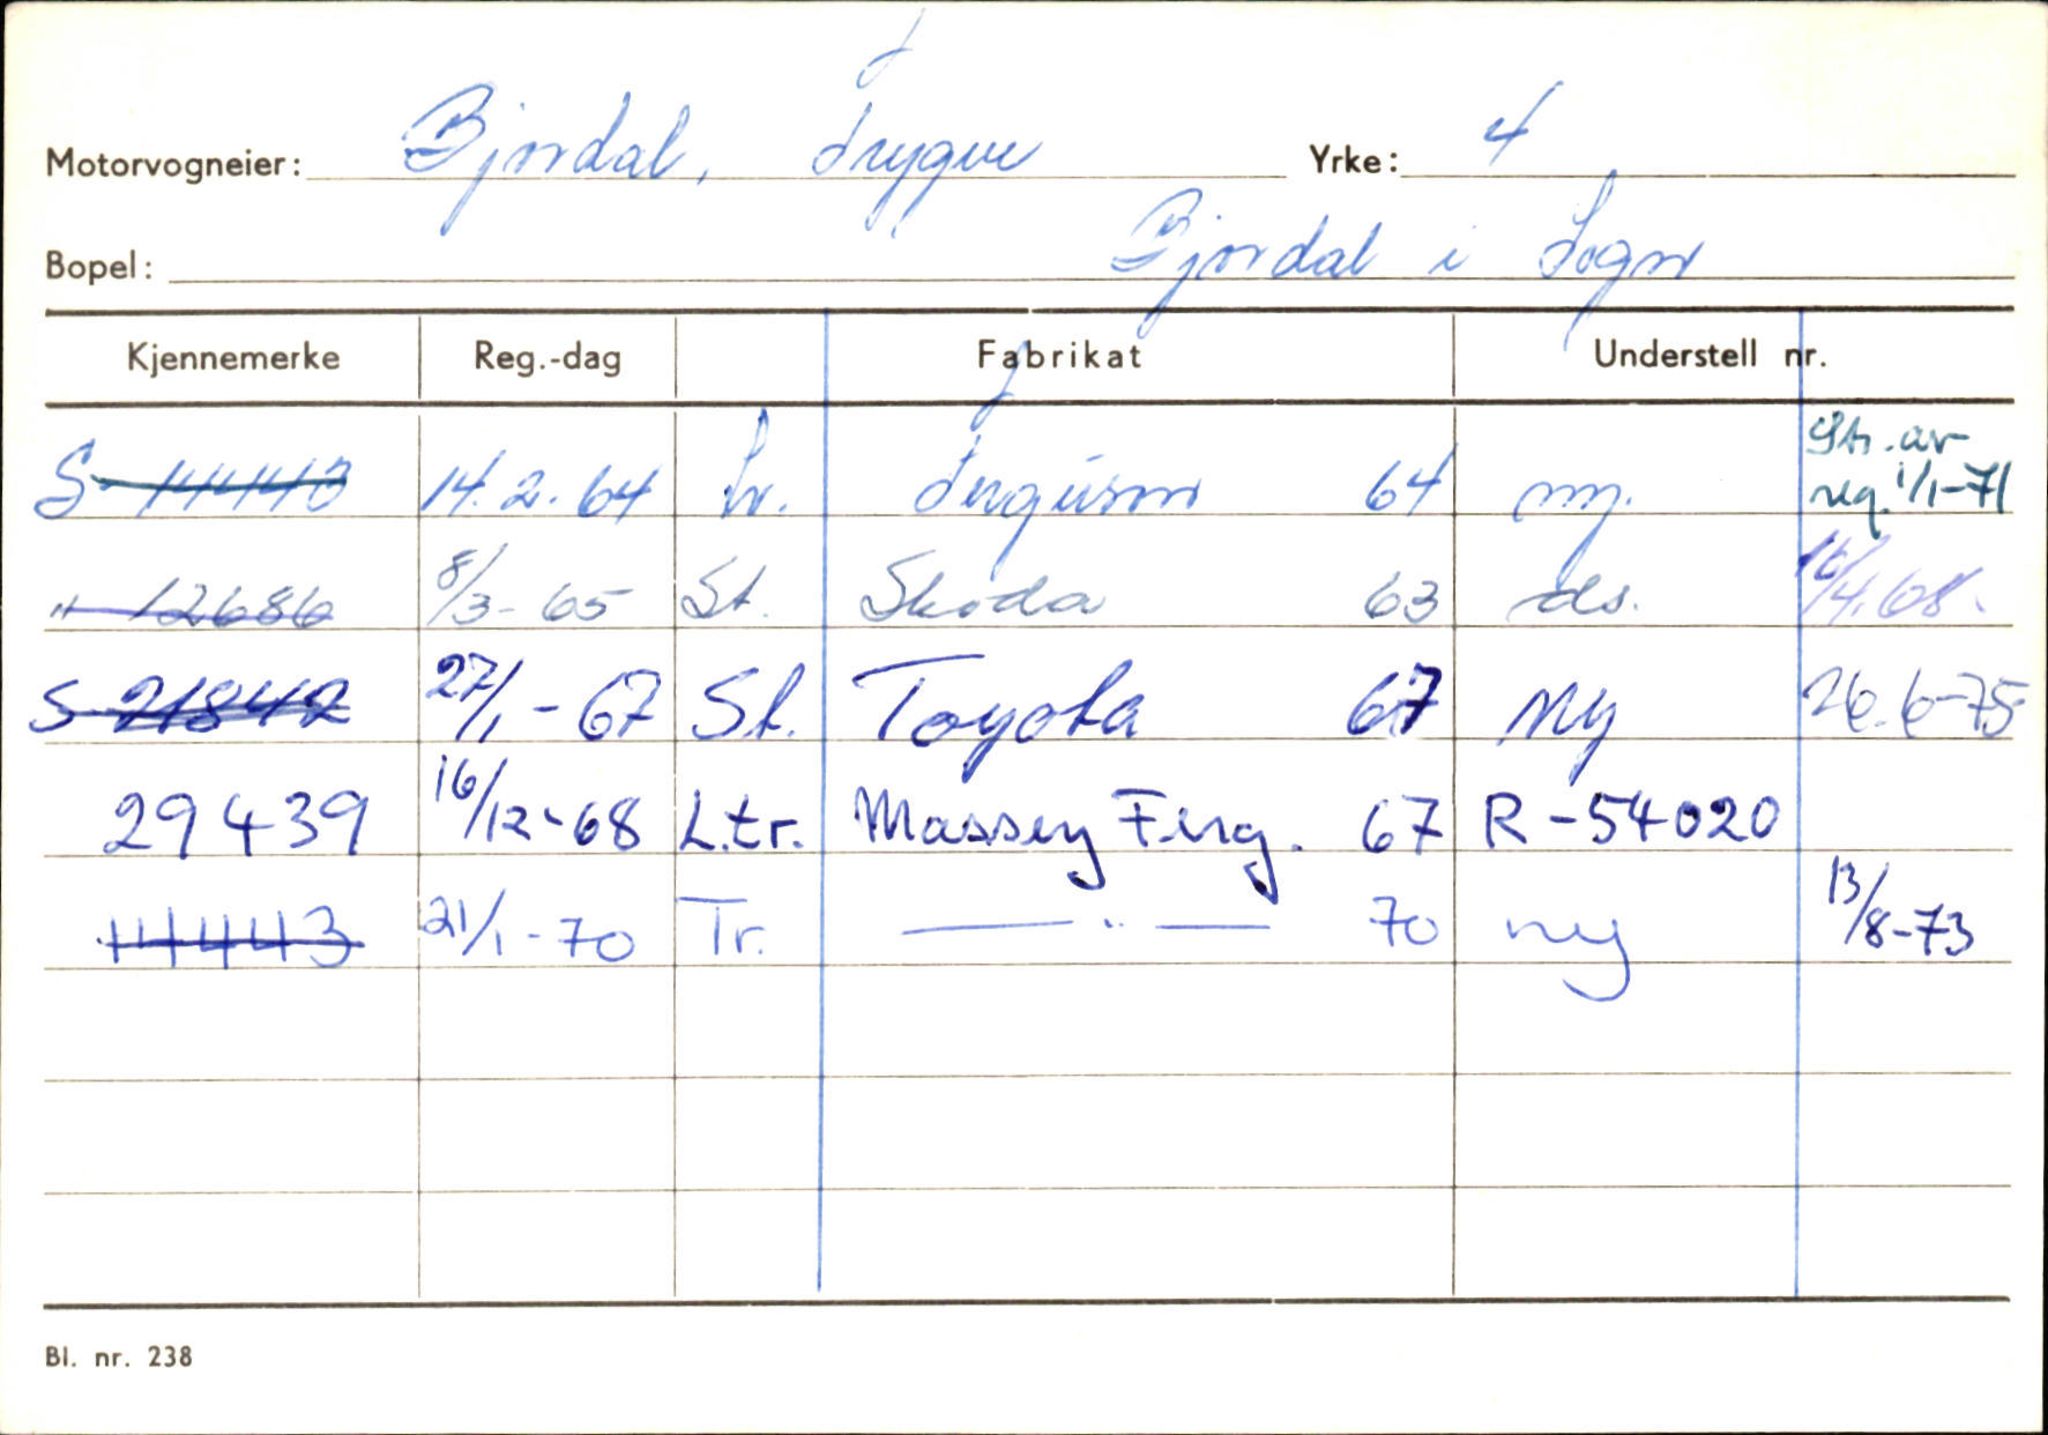 Motorvogneier: Bjordal, Trygve Yrke: 4
Bopel: Bjordal i Sogn
Kjennemerke Reg.-dag Fabrikat Understell nr.
S-14443 14.2.64 tr. Ferguson 64 ny. Str. av reg. 1/1-71
" 12686 8/3-65 St. Skoda 63 ds. 16/4.68.
S-21842 27/1-67 St. Toyota 67 Ny 26.6-75
29439 16/12-68 L.tr. Massey Ferg. 67 R-54020
11443 21/1-70 Tr. — " — 70 ny 13/8-73
Bl. nr. 238